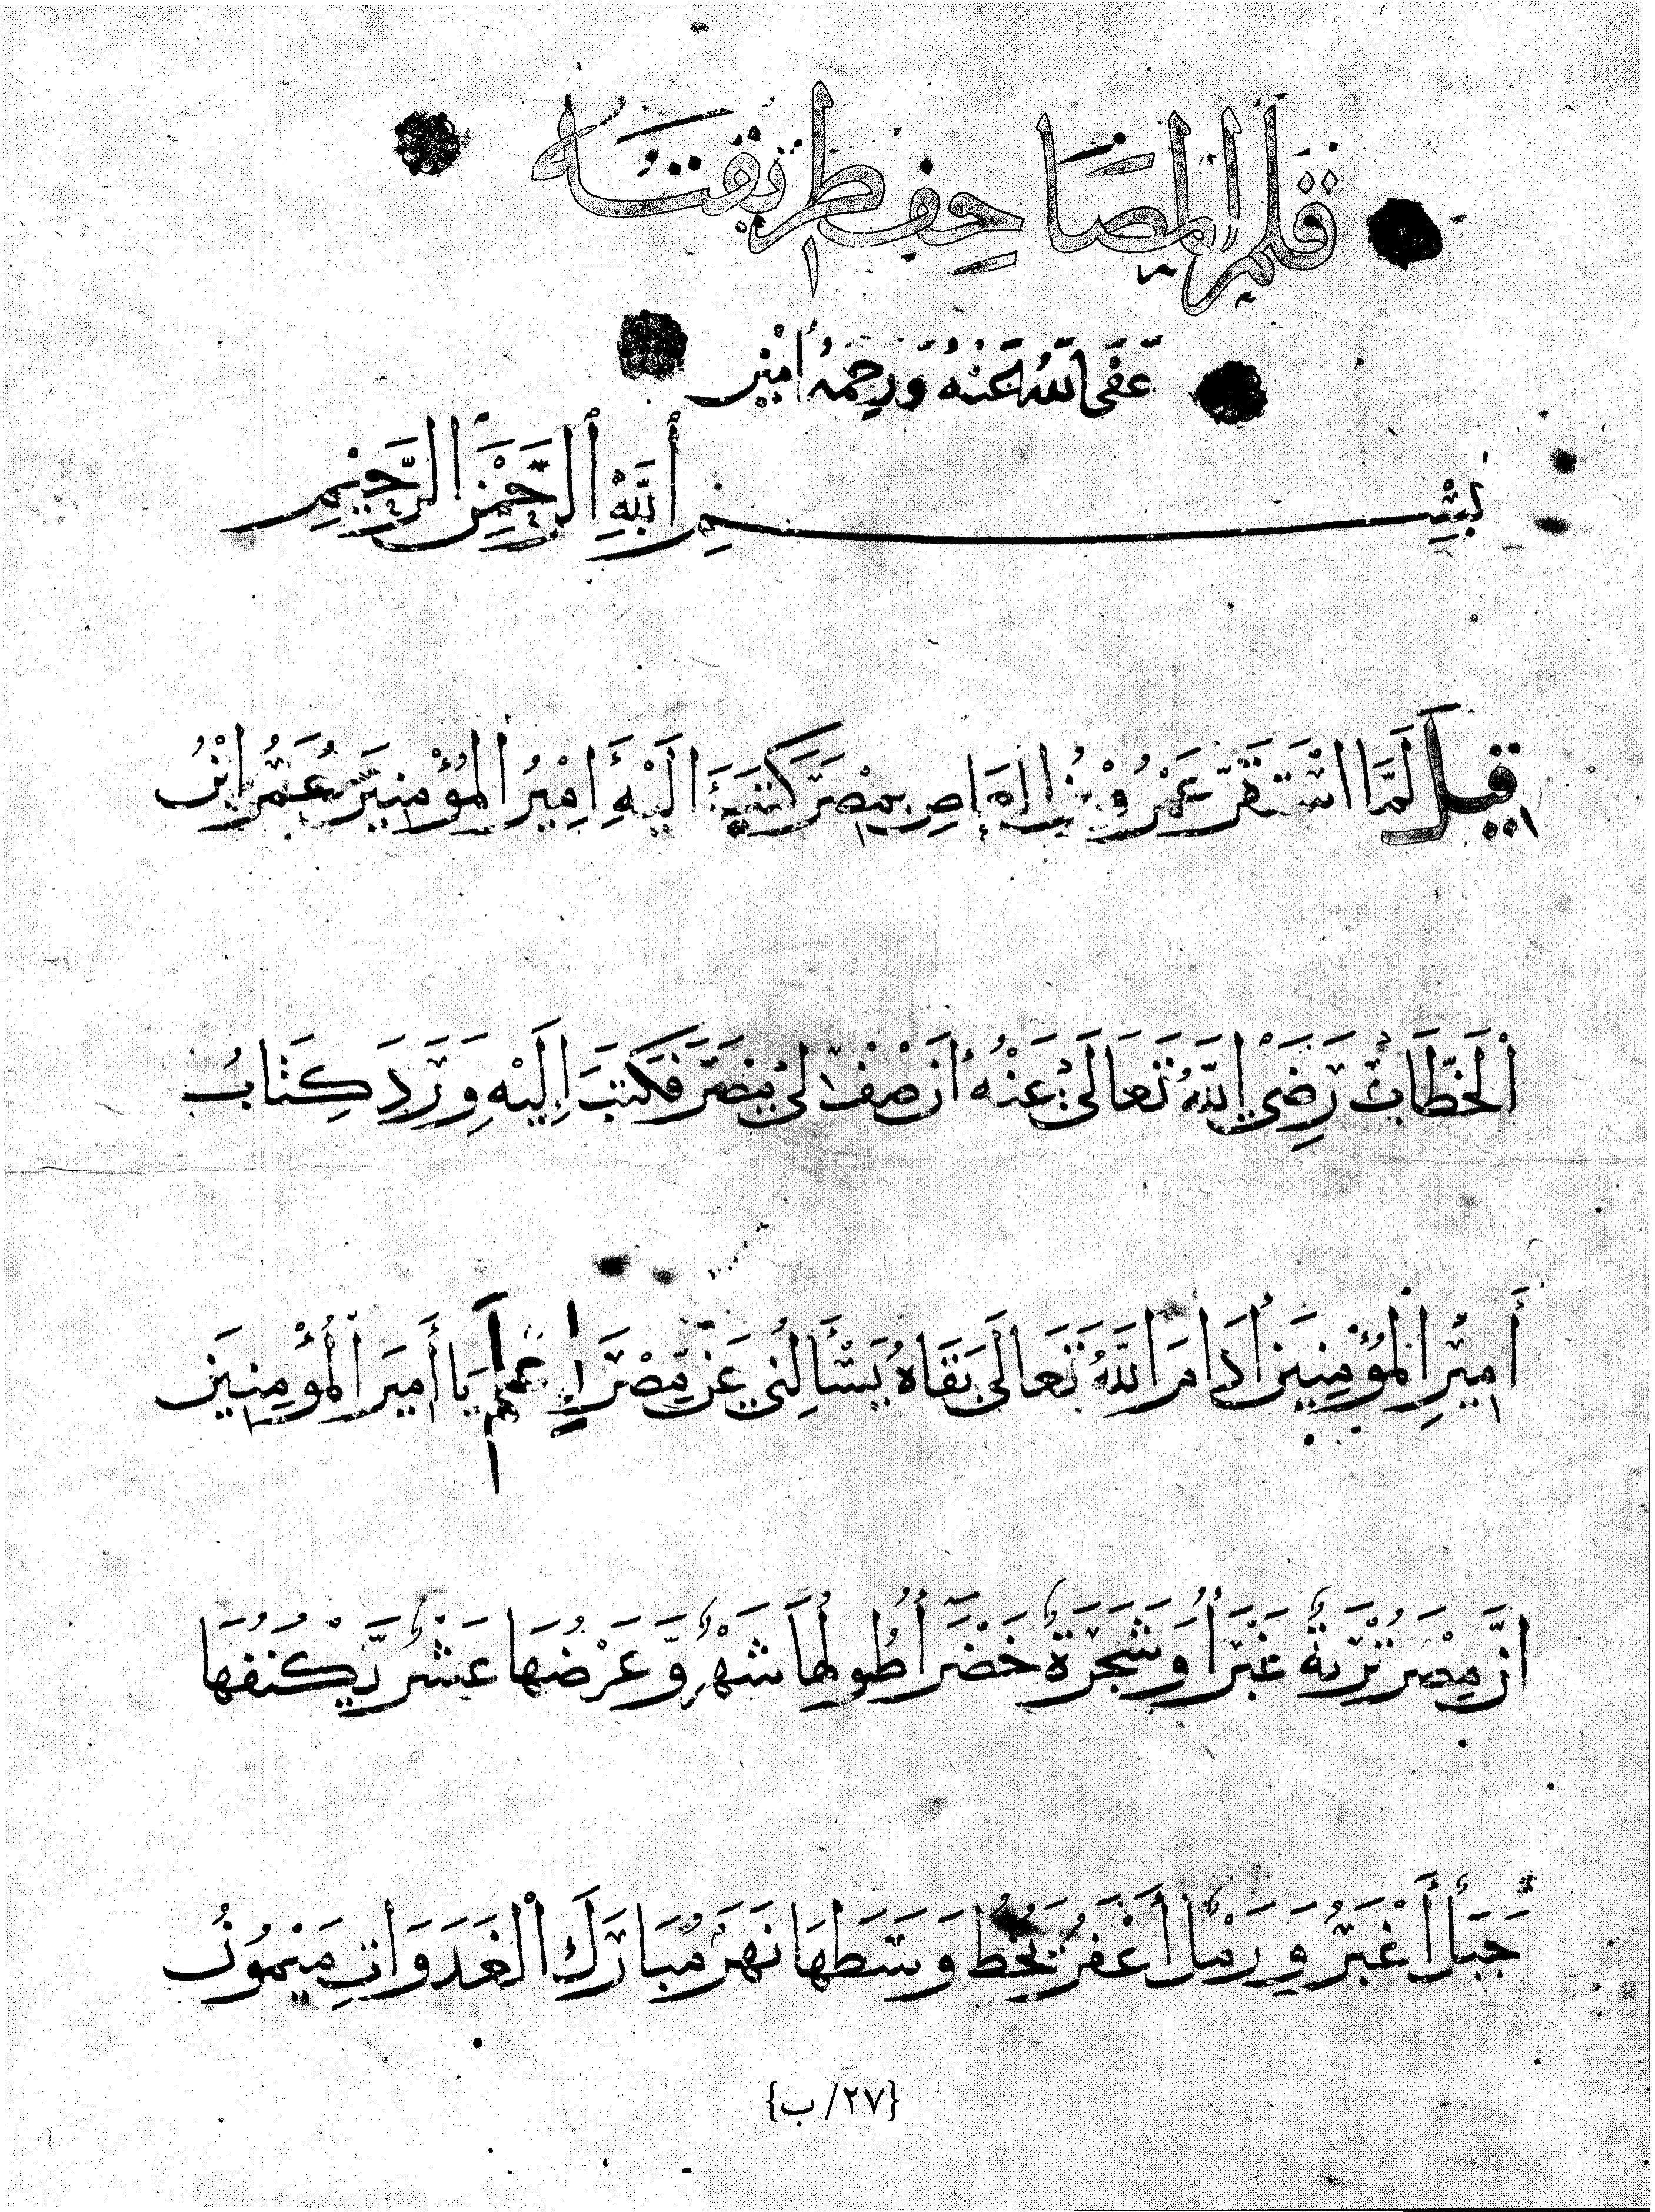 قلم المصاحف طريقته
عفى الله عنه ورحمه امين
بِسْمِ اللَّهِ الرَّحْمَنِ الرَّحِيمِ
قيل لَمَّا اسْتَقَرَّ عَمْرُو بْنُ الْعَاصِ بِمِصْرَ كَتَبَ اِلَيْهِ اَمِيْرُ الْمُؤْمِنِيَن عُمَرُ ابْنُ
اْلخَطَّابْ رَضِيَ اللَّهُ تَعَالَى عَنْهُ اَنْ صِفْ لِى مِصْرَ فَكَتَبَ اِلَيْهِ وَرَدَ كِتَابُ
أَمِيْرِ الْمُؤْمِنِيَن اَدَامَ اللَّهُ تَعَالَى بَقَاهُ يَسْأَلُنِي عَنْ مِصْرَ اِعلم يَا أَمِيَر الْمُؤْمِنِيَن
انَّ مِصْرَ تُرْبَةٌ غَبْرَا وَشَجَرَةٌ خَضْرَا طُولُهَا شَهْرٌ وَّعَرْضُهَا عَشْرٌ يَّكْنُفُهَا
جَبَلٌ أَغْبَرُ وَرَمْلٌ أَعْفَرُ يَخُط وَسَطَهَا نَهَرٌ مُبَارَكُ الْغَدَوَاتِ مَيْمُونُ
{٢٧/ب}